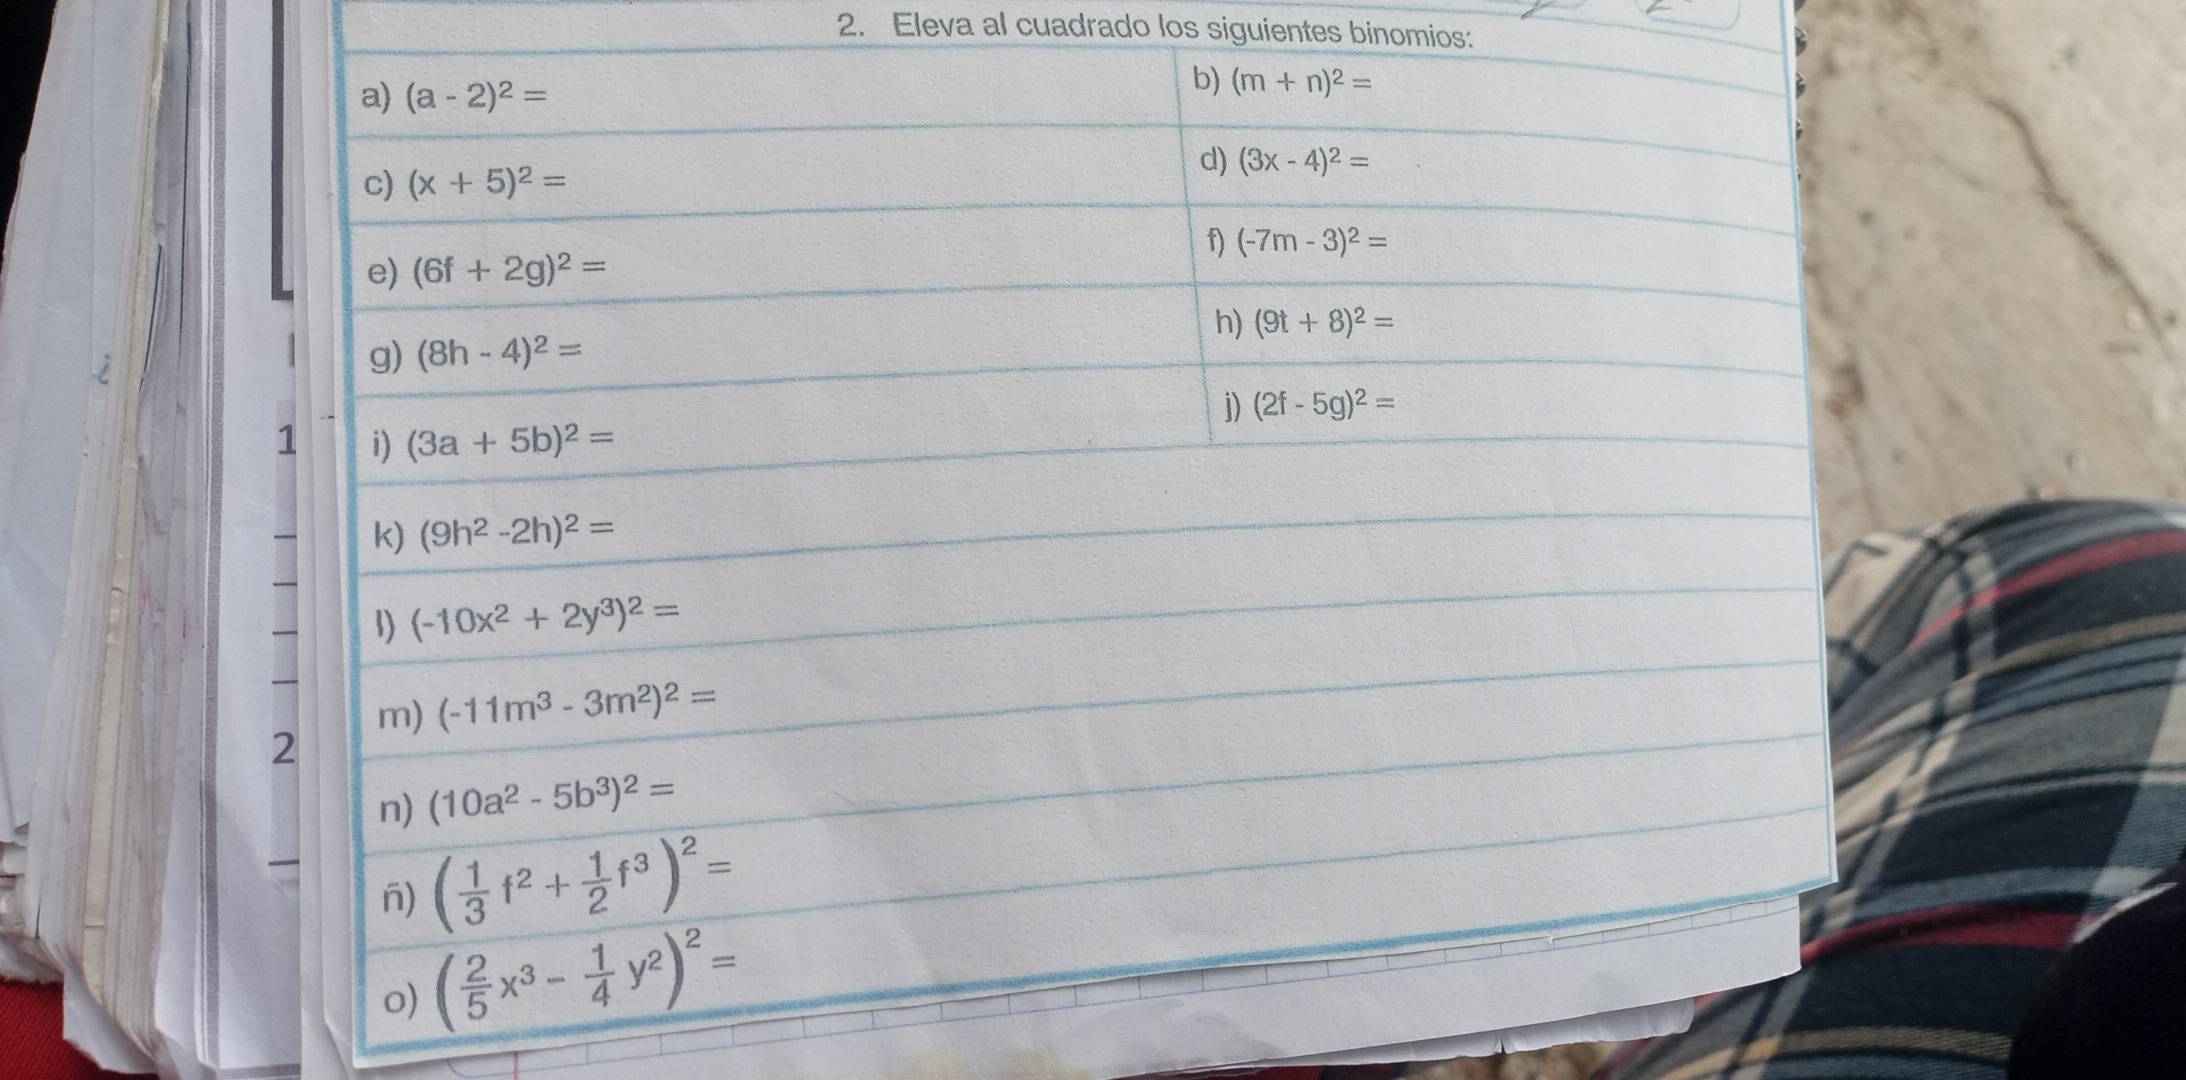 2. Eleva al cuadrado los siguientes binomios:
a) (a - 2)² =
b) (m + n)² =
c) (x + 5)² =
d) (3x - 4)² =
e) (6f + 2g)² =
f) (-7m - 3)² =
g) (8h - 4)² =
h) (9t + 8)² =
i) (3a + 5b)² =
j) (2f - 5g)² =
k) (9h² -2h)² =
l) (-10x² + 2y³)² =
m) (-11m³ - 3m²)² =
n) (10a² - 5b³)² =
ñ) (1/3 f² + 1/2 f³)² =
o) (2/5 x³ - 1/4 y²)² =
1
2